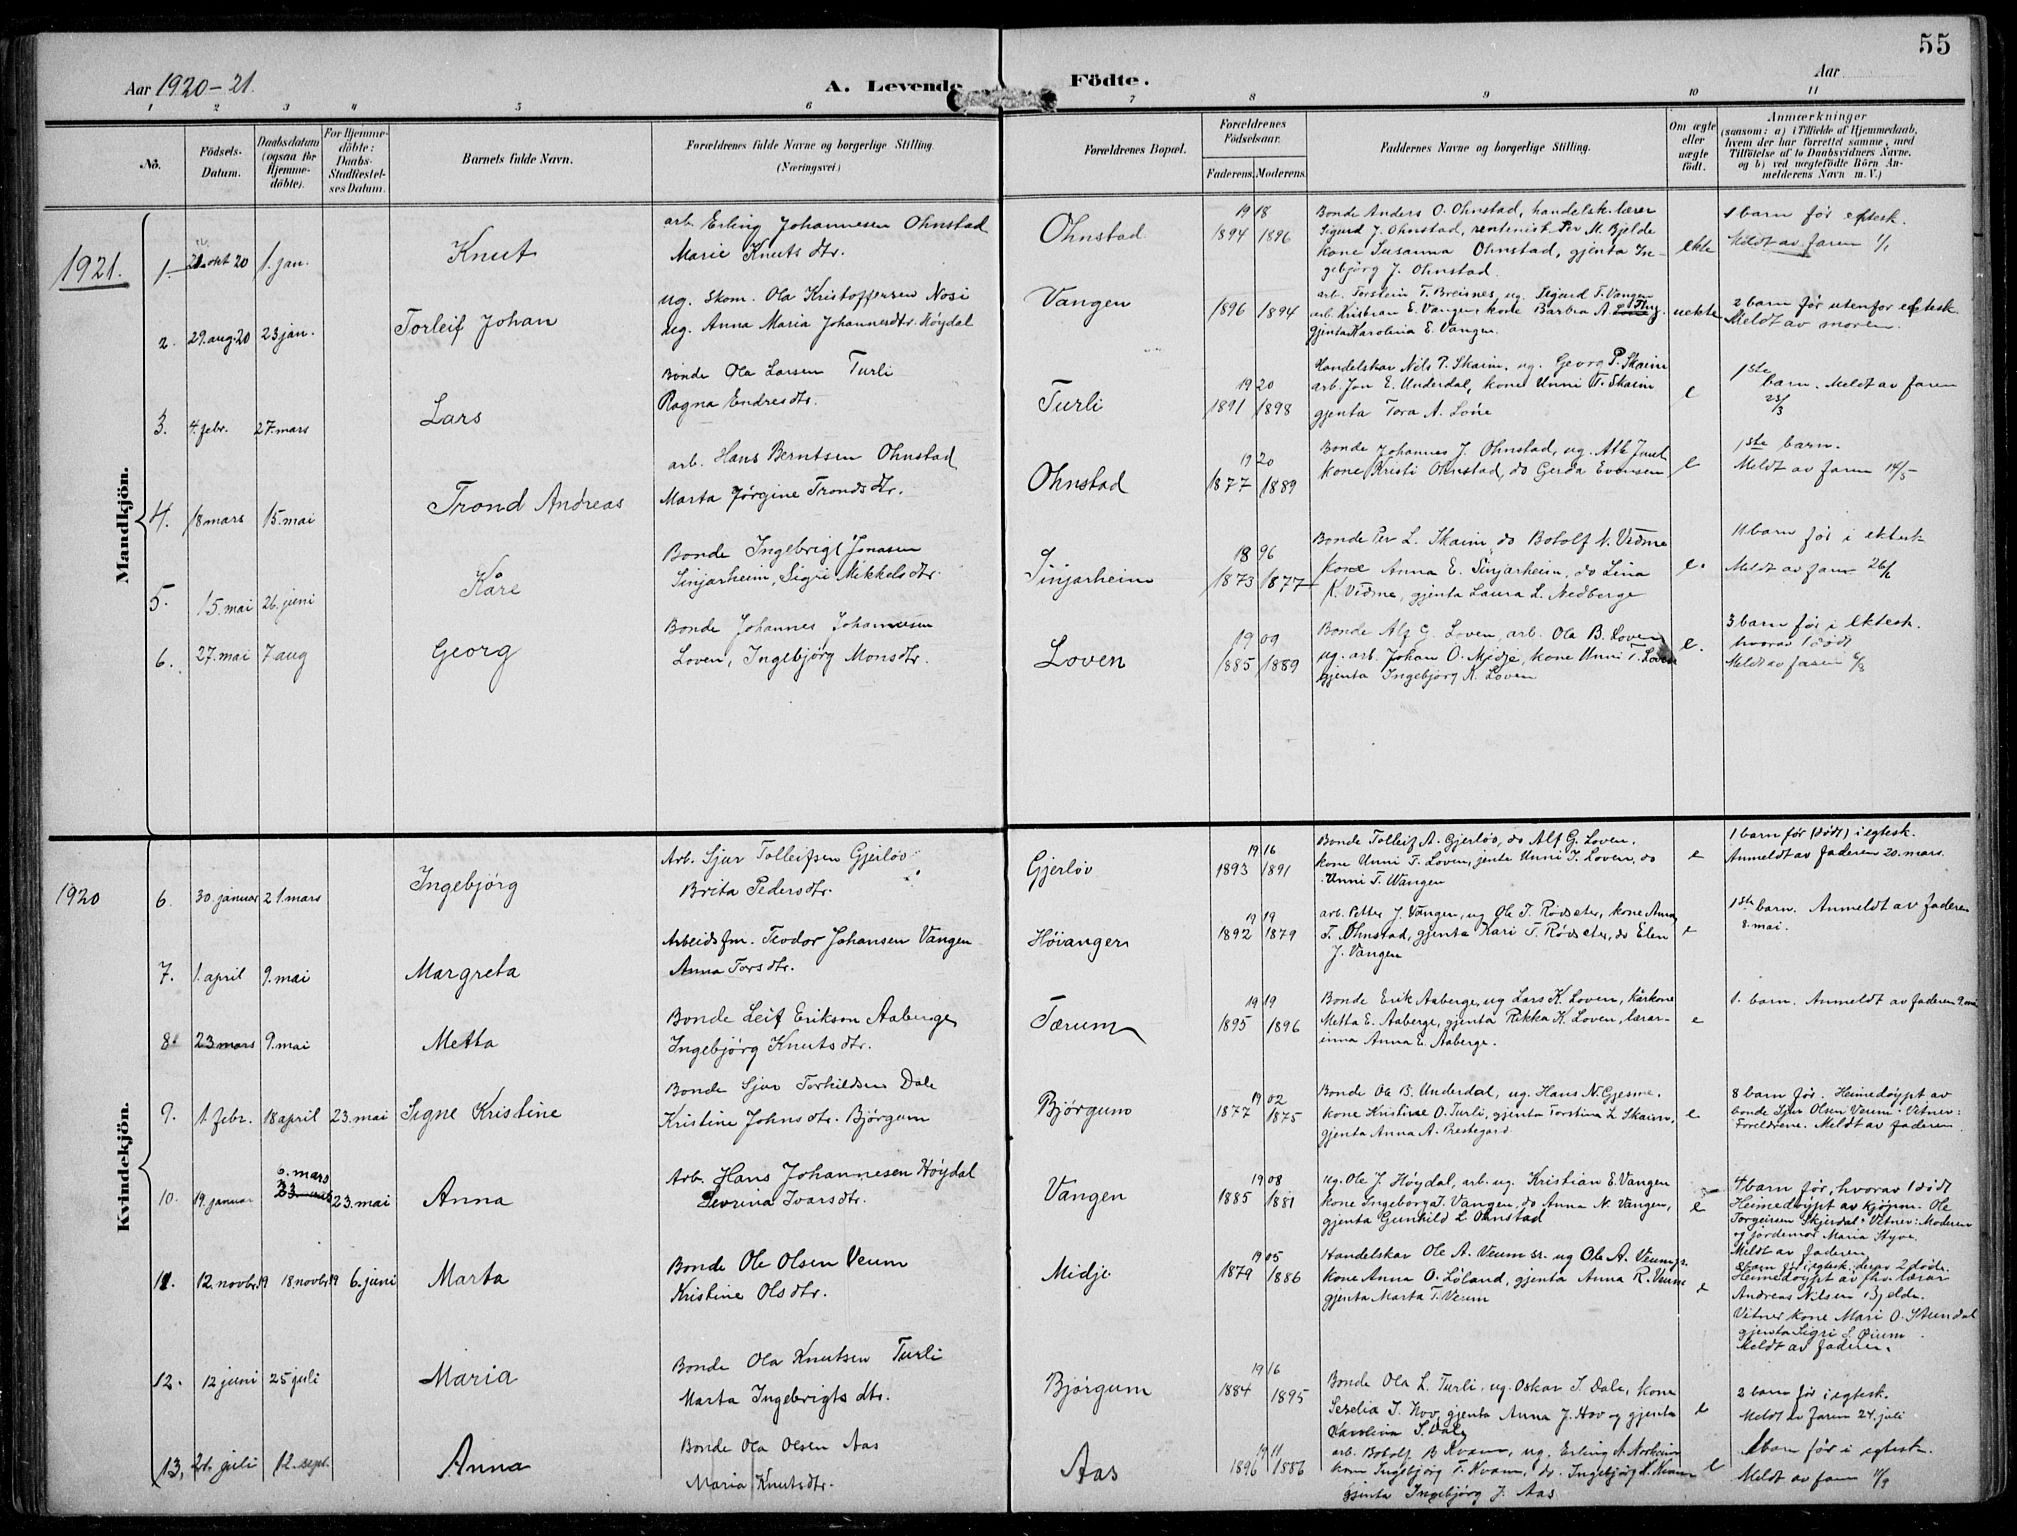 55
Aar 1920-21.
A. Levende Födte.
Aar
1 2 3 4 5 6 7 8 9 10 11
No.
Födsels-Datum.
Daabsdatum (ogsaa for Hjemmedöbte).
For Hjemmedöbte: Daabs-Stadfæstelses Datum.
Barnets fulde Navn.
Forældrenes fulde Navne og borgerlige Stilling. (Næringsvei)
Forældrenes Bopæl.
Forældrenes Födselsaar.
Faderens. Moderens.
Faddernes Navne og borgerlige Stilling.
Om ægte eller uægte födt.
Anmærkninger
(saasom: a) i Tilfælde af Hjemmedaab, hvem der har forrettet samme, med Tilföielse af to Daabsvidners Navne, og b) ved uægtefödte Börn Anmelderens Navn m. V.)
Mandkjön.
1921.
1 21 okt 20 1. jan. Knut
arb. Erling Johannesen Ohnstad
Marie Knutsdtr.
Ohnstad
1918
1894 1896
Bonde Anders O. Ohnstad, handelsk. lærer
Sigurd J. Ohnstad, rentenist Per M. Bjelde
kone Susanna Ohnstad, gjenta In-
gebjörg J. Ohnstad
ekte
1 barn før i ektesk.
Meldt av faren 1/1
2. 29. aug. 20 23 jan. Torleif Johan
ug. Skom. Ola Kristoffersen Nosi
ug. Anna Maria Johannesdtr. Høydal
Vangen
1896 1894
arb. Torstein T. Breisnes, ug. Sigurd T. Vangen
arb. Kristian E. Vangen, kone Barbra A.
gjenta Karolina E. Vangen
uekte
2 barn før utenfor ektesk.
Meldt av moren.
3. 4. febr. 27. mars Lars
Bonde Ola Larsen Turli
Ragna Endresdtr.
Turli
1920
1891 1898
Handelskar Nils P. Skaim, ug. Georg P. Skaim
arb. Jon E. Underdal, kone Unni T. Skaim
gjenta Tora A. Lone
e
1ste barn. Meldt av faren
23/3
4. 18 mars 15. mai Trond Andreas
arb. Hans Berntsen Ohnstad
Marta Jörgine Trondsdtr.
Ohnstad
1920
1877 1889
Bonde Johannes J. Ohnstad, ug. Atle Juul
kone Kristi Ohnstad, do Gerda Evensen
e
1ste barn.
Meldt av faren 14/5
5. 15. mai 26. juni Kåre
Bonde Ingebrigt Jonasen
Sinjarheim, Sigri Mikkelsdtr.
Sinjarheim
1896
1873 1877
Bonde Per L. Skaim, do Botolf N. Vidme
kone Anna E. Sinjarheim, do Lina
K. Vidme, gjenta Laura L. Nedberge
e.
11 barn før i ektesk
Meldt av faren 26/6
6. 27. mai 7. aug Georg
Bonde Johannes Johannesen
Loven, Ingebjörg Monsdtr.
Loven
1909
1885 1889
Bonde Alf G. Loven, arb. Ola B. Loven
ug. arb. Johan O. Midje, kone Unni T. Loven
gjenta Ingebjörg K. Loven
e.
3 barn før i ektesk.
hvorav 1 dödt
Meldt av faren 6/8
Kvindekjön.
1920
6. 30. januar 21. mars Ingebjörg
Arb. Sjur Tolleifsen Gjerløv
Brita Pedersdtr.
Gjerløv
1916
1893 1891
Bonde Tolleif A. Gjerløv, do Alf G. Loven,
kone Unni T. Loven, jente Unni J. Loven, do
Unni T. Wangen
e
1 barn før (dødt) i egtesk.
Anmeldt av faderen 20. mars.
7. 1. april 9. mai Margreta
Arbeidsfm. Teodor Johansen Vangen
Anna Torsdtr.
Höiangen
1919
1892 1879
arb. Petter J. Vangen, ug Ole T. Rødseter, kone Anna
T. Ohnstad, gjenta Kari T. Rødseter, do Elen
J. Vangen
e
1ste barn. Anmeldt av faderen
8. mai.
8 23 mars 9. mai Metta
Bonde Leif Erikson Aaberge
Ingebjörg Knutsdtr.
Tærum
1919
1895 1896
Bonde Erik Aaberge, ug Lars K. Loven, kårkone
Metta E. Aaberge, gjenta Rikka K. Loven, lærar-
inna Anna E. Aaberge.
e
1. barn. Anmeldt av faderen 9. mai
9. 1. febr. 18 april 23. mai Signe Kristine
Bonde Sjur Torkildsen Dale
Kristine Johnsdtr. Björgum
Bjørgum
1902
1877 1875
Bonde Ola B. Underdal, ug. Hans N. Gjesme,
kone Kristine O. Turli, gjenta Torstina L. Skaim,
gjenta Anna A. Prestegard
e
8 barn før. Heimedøypt av
bonde Sjur Olsen Veum. Vitner:
Foreldrene. Meldt av faderen.
10. 19. januar 6. mars 23. mai Anna
Arb. Hans Johannesen Høydal
Sevrina Ivarsdtr.
Vangen
1908
1885 1881
ug. Ole J. Høydal, arb. ug. Kristian E. Vangen
kone Ingeborg I. Vangen, do Anna N. Vangen,
gjenta Gunhild L. Ohnstad
e
4 barn før, hvorav 1 dødt
Heimedøypt av kjøpm. Ole
Torgeirsen Skjerdal. Vitner: Moderen
og jordemor Maria Styve.
Meldt av faderen
11. 12. novbr. 19 18 novbr. 19 6. juni Marta
Bonde Ole Olsen Veum
Kristine Olsdtr.
Midje
1905
1879 1886
Handelskar Ole A. Veum sr. ug Ole A. Veum jr.
kone Anna O. Løland, gjenta Anna R. Veum
gjenta Marta T. Veum
e
barn før i egtesk. derav 2 døde.
Heimedøypt av fhv. lærar
Andreas Nilsen Bjelde.
Vitner kone Mari O. Stundal
gjenta Sigri S. Øium
Meldt av faderen.
12. 12 juni 25 juli Maria
Bonde Ola Knutsen Turli
Marta Ingebrigtsdtr.
Björgum
1916
1884 1895
Bonde Ola L. Turli, ug. Oskar S. Dale, kone
Seselia I. Hov, gjenta Anna J. Hov og gjenta
Karolina S. Dale
e
2 barn før i egtesk.
Meldt av faren 24. juli
13, 21. juli 12. sept. Anna
Bonde Ola Olsen Aas
Maria Knutsdtr.
Aas
1911
1896 1886
arb. Botolf B. Kvam, ug. Erling A. Norheim
kone Ingebjörg T. Kvam, do. Ingebjörg K. Kvam
gjenta Ingebjörg J. Aas
e
1 barn før i egtesk.
Meldt av faren 11/9